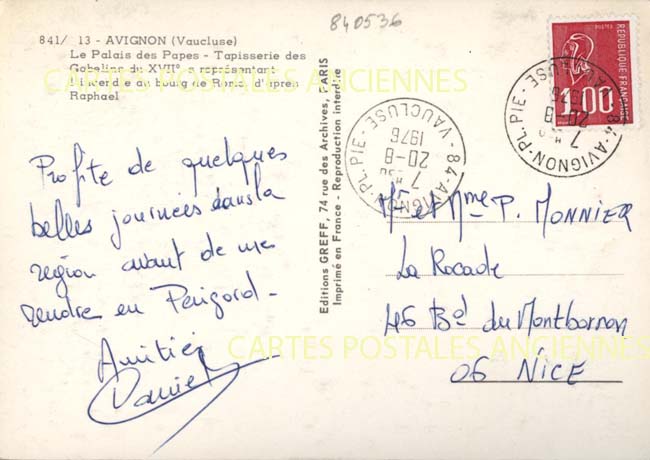 840536
841/ 13 - AVIGNON (Vaucluse)
Le Palais des Papes - Tapisserie des
Gobelins du XVIIe s représentant
l'Incendie du bourg de Rome d'après
Raphael
CARTES POSTALES ANCIENNES
Profite de quelques
belles journées dans la
région avant de me
rendre en Périgord -
Amitiés
Daniel
Editions GREFF, 74 rue des Archives, PARIS
Imprimé en France - Reproduction interdite
84 - AVIGNON - PL. PIE - VAUCLUSE
7 H
20-8
1976
84 - AVIGNON - PL. PIE - VAUCLUSE
7 H
20-8
1976
POSTES
RÉPUBLIQUE FRANÇAISE
1,00
Mr et Mme P. MONNIER
La Rocade
46 Bd du Montboron
06 NICE
CARTES POSTALES ANCIENNES